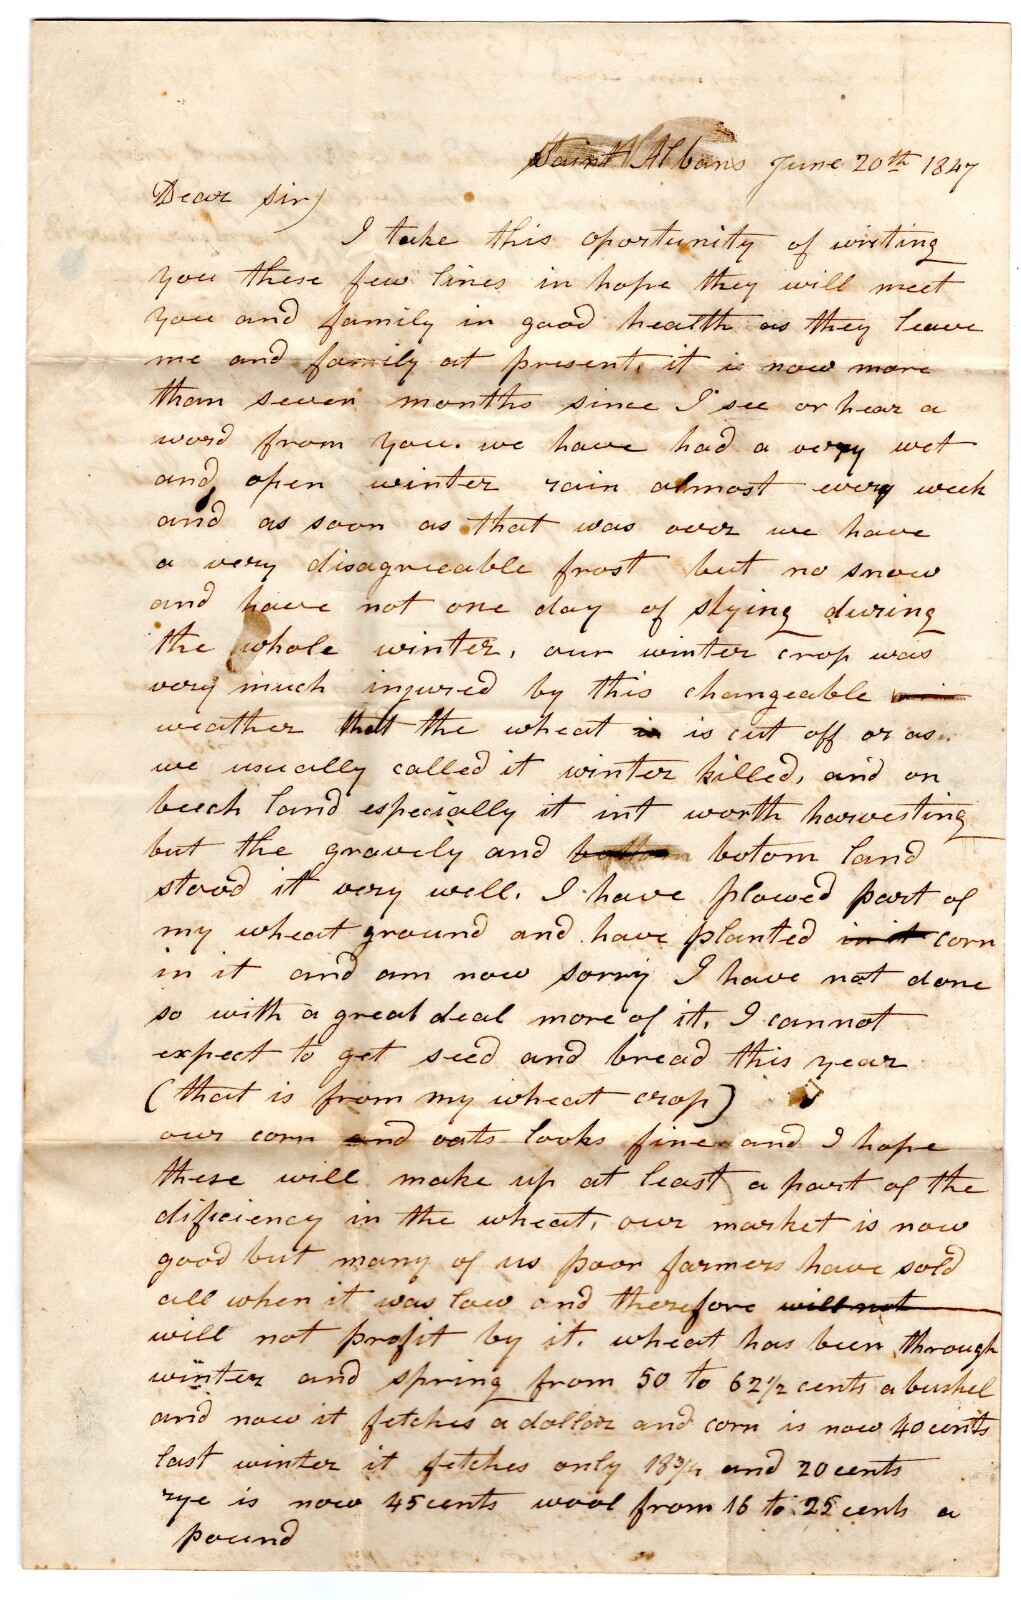 Saint Albans June 20th 1847
Dear Sir)
I take this oportunity of wirting
you these few lines in hope they will meet
you and family in good health as they leave
me and family at present. it is now more
than seven months since I see or hear a
word from you. we have had a very wet
and open winter rain almost every week
and as soon as that was over we have
a very disagrieable frost but no snow
and have not one day of slying during
the whole winter, our winter crop was
very much injured by this changeable
weather that the wheat is is cut off or as
we usually called it winter killed, and on
beech land especially it int worth harvesting
but the gravely and bottom botom land
stood it very well. I have plowed part of
my wheat ground and have planted in it corn
in it and am now sorry I have not done
so with a great deal more of it. I cannot
expect to get seed and bread this year
(that is from my wheat crop)
our corn and oats looks fine and I hope
these will make up at least a part of the
dificiency in the wheat, our market is now
good but many of us poor farmers have sold
all when it was low and therefore will not
will not profit by it. wheat has been through
winter and spring from 50 to 62 1/2 cents a bushel
and now it fetches a dollar and corn is now 40 cents
last winter it fetches only 18 3/4 and 20 cents
rye is now 45 cents wool from 16 to 25 cents a
pound